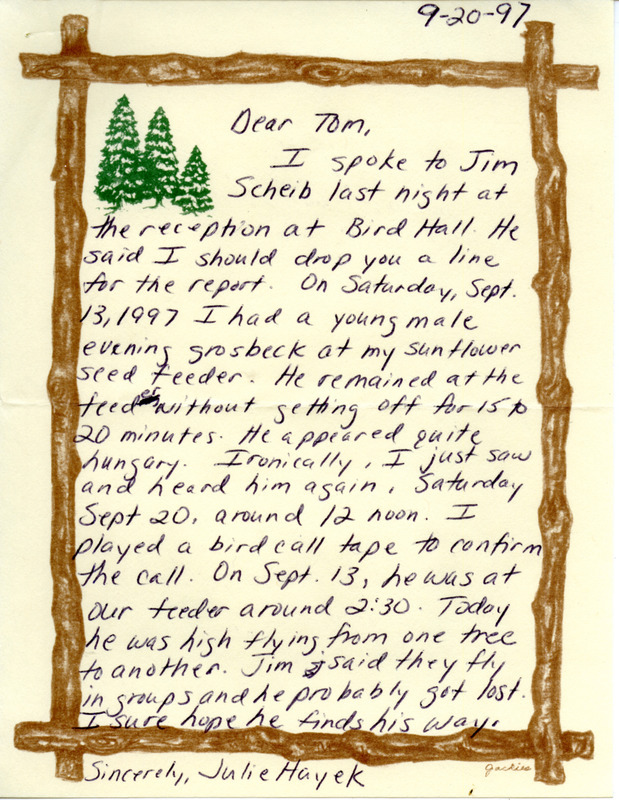 9-20-97
Dear Tom,
I spoke to Jim
Scheib last night at
the reception at Bird Hall. He
said I should drop you a line
for the report. On Saturday, Sept.
13, 1997 I had a young male
evening grosbeck at my sunflower
seed feeder. He remained at the
feeder without getting off for 15 to
20 minutes. He appeared quite
hungary. Ironically, I just saw
and heard him again, Saturday
Sept 20, around 12 noon. I
played a bird call tape to confirm
the call. On Sept. 13, he was at
our feeder around 2:30. Today
he was high flying from one tree
to another. Jim said they fly
in groups and he probably got lost.
I sure hope he finds his way.
Sincerely, Julie Hayek
Jackies